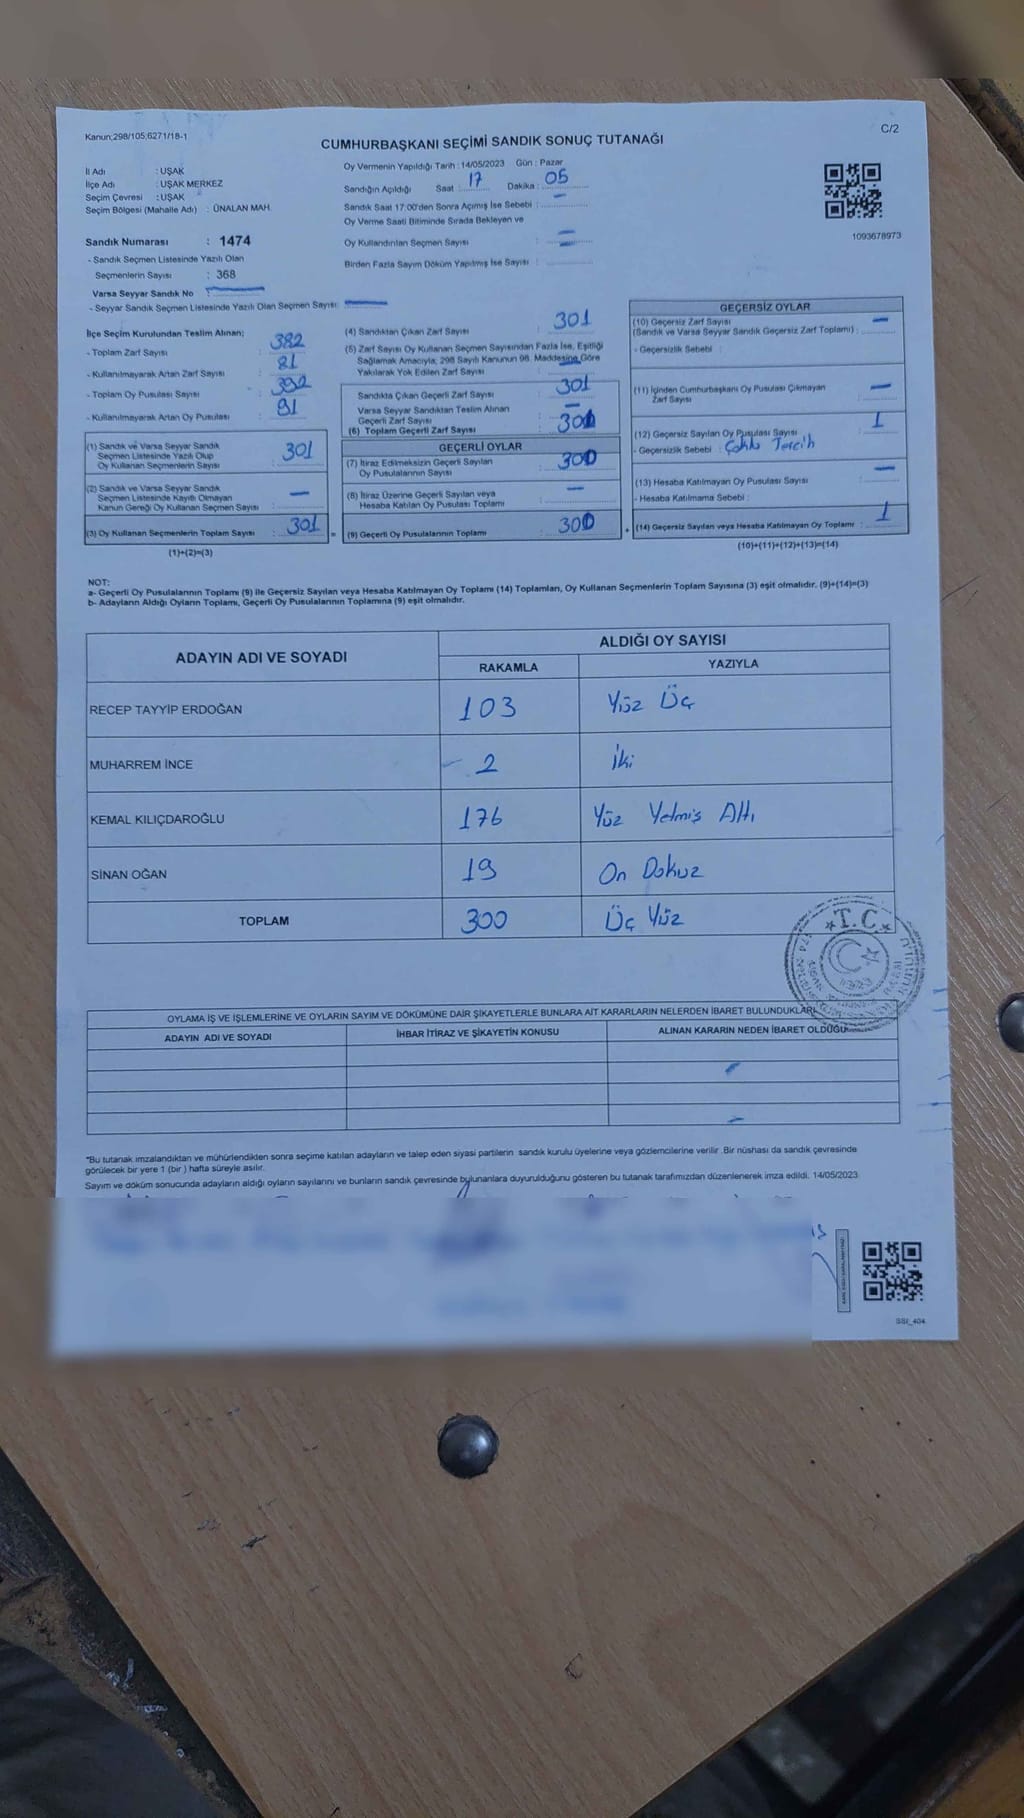 Kanun;298/105;6271/18-1
C/2
CUMHURBAŞKANI SEÇİMİ SANDIK SONUÇ TUTANAĞI
İl Adı : UŞAK
İlçe Adı : UŞAK MERKEZ
Seçim Çevresi : UŞAK
Seçim Bölgesi (Mahalle Adı) : ÜNALAN MAH.
Oy Vermenin Yapıldığı Tarih : 14/05/2023 Gün : Pazar
Sandığın Açıldığı Saat : 17 Dakika : 05
Sandık Saat 17:00'den Sonra Açımış İse Sebebi : —
Oy Verme Saati Bitiminde Sırada Bekleyen ve
Oy Kullandırılan Seçmen Sayısı : —
Birden Fazla Sayım Döküm Yapılmış İse Sayısı :
1093678973
Sandık Numarası : 1474
- Sandık Seçmen Listesinde Yazılı Olan
Seçmenlerin Sayısı : 368
Varsa Seyyar Sandık No : —
- Seyyar Sandık Seçmen Listesinde Yazılı Olan Seçmen Sayısı : —
İlçe Seçim Kurulundan Teslim Alınan;
- Toplam Zarf Sayısı : 382
- Kullanılmayarak Artan Zarf Sayısı : 81
- Toplam Oy Pusulası Sayısı : 392
- Kullanılmayarak Artan Oy Pusulası : 91
(1) Sandık ve Varsa Seyyar Sandık
Seçmen Listesinde Yazılı Olup
Oy Kullanan Seçmenlerin Sayısı : 301
(2) Sandık ve Varsa Seyyar Sandık
Seçmen Listesinde Kayıtlı Olmayan
Kanun Gereği Oy Kullanan Seçmen Sayısı : —
(3) Oy Kullanan Seçmenlerin Toplam Sayısı : 301
(1)+(2)=(3)
(4) Sandıktan Çıkan Zarf Sayısı : 301
(5) Zarf Sayısı Oy Kullanan Seçmen Sayısından Fazla İse, Eşitliği
Sağlamak Amacıyla, 298 Sayılı Kanunun 98. Maddesine Göre
Yakılarak Yok Edilen Zarf Sayısı : —
Sandıkta Çıkan Geçerli Zarf Sayısı : 301
Varsa Seyyar Sandıktan Teslim Alınan
Geçerli Zarf Sayısı : —
(6) Toplam Geçerli Zarf Sayısı :
GEÇERLİ OYLAR
(7) İtiraz Edilmeksizin Geçerli Sayılan
Oy Pusulalarının Sayısı : 300
(8) İtiraz Üzerine Geçerli Sayılan veya
Hesaba Katılan Oy Pusulası Toplamı : —
(9) Geçerli Oy Pusulalarının Toplamı : 300
GEÇERSİZ OYLAR
(10) Geçersiz Zarf Sayısı
(Sandık ve Varsa Seyyar Sandık Geçersiz Zarf Toplamı) : —
- Geçersizlik Sebebi :
(11) İçinden Cumhurbaşkanı Oy Pusulası Çıkmayan
Zarf Sayısı : —
(12) Geçersiz Sayılan Oy Pusulası Sayısı : 1
- Geçersizlik Sebebi : Çoklu Tercih
(13) Hesaba Katılmayan Oy Pusulası Sayısı : —
- Hesaba Katılmama Sebebi :
(14) Geçersiz Sayılan veya Hesaba Katılmayan Oy Toplamı : 1
(10)+(11)+(12)+(13)=(14)
NOT:
a- Geçerli Oy Pusulalarının Toplamı (9) ile Geçersiz Sayılan veya Hesaba Katılmayan Oy Toplamı (14) Toplamları, Oy Kullanan Seçmenlerin Toplam Sayısına (3) eşit olmalıdır. (9)+(14)=(3)
b- Adayların Aldığı Oyların Toplamı, Geçerli Oy Pusulalarının Toplamına (9) eşit olmalıdır.
ADAYIN ADI VE SOYADI
ALDIĞI OY SAYISI
RAKAMLA YAZIYLA
RECEP TAYYİP ERDOĞAN 103 Yüz Üç
MUHARREM İNCE 2 İki
KEMAL KILIÇDAROĞLU 176 Yüz Yetmiş Altı
SİNAN OĞAN 19 On Dokuz
TOPLAM 300 Üç Yüz
T.C.
OYLAMA İŞ VE İŞLEMLERİNE VE OYLARIN SAYIM VE DÖKÜMÜNE DAİR ŞİKAYETLERLE BUNLARA AİT KARARLARIN NELERDEN İBARET BULUNDUKLARI
ADAYIN ADI VE SOYADI İHBAR İTİRAZ VE ŞİKAYETİN KONUSU ALINAN KARARIN NEDEN İBARET OLDUĞU
*Bu tutanak imzalandıktan ve mühürlendikten sonra seçime katılan adayların ve talep eden siyasi partilerin sandık kurulu üyelerine veya gözlemcilerine verilir. Bir nüshası da sandık çevresinde
görülecek bir yere 1 (bir) hafta süreyle asılır.
Sayım ve döküm sonucunda adayların aldığı oyların sayılarını ve bunların sandık çevresinde bulunanlara duyurulduğunu gösteren bu tutanak tarafımızdan düzenlenerek imza edildi. 14/05/2023
SSI_404